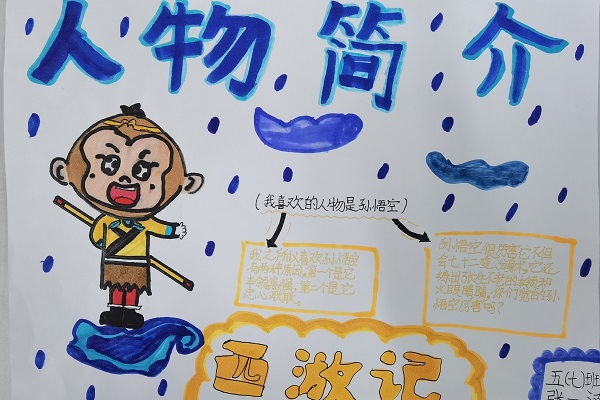 人物简介
(我喜欢的人物是孙悟空)
我之所以喜欢孙悟空
有两种原因,第一个是它
本领高强,第二个是它
忠心耿耿。
孙悟空很厉害它不但
会七十二变
火眼金睛,你们觉得孙
悟空厉害吗?
西游记
五(七)班
张一